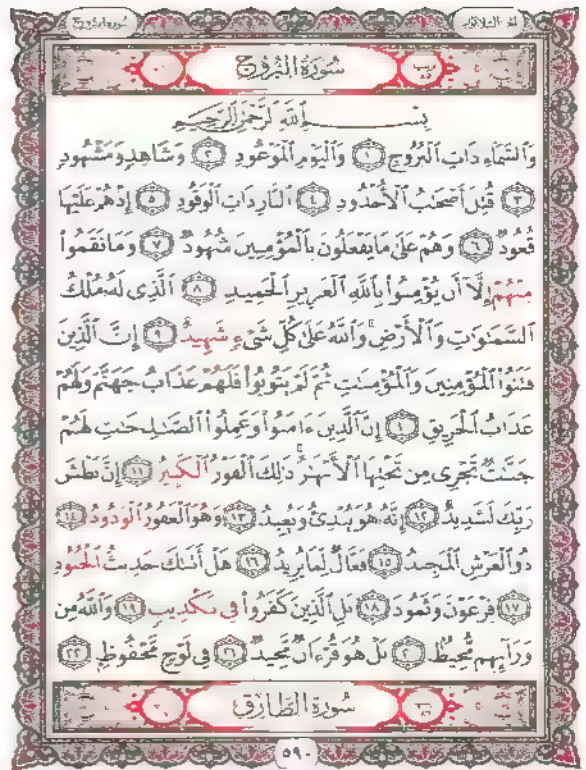 الجزء الثلاثون سورة البروج
سُورَةُ الْبُرُوجِ
بِسْمِ ٱللَّهِ ٱلرَّحْمَٰنِ ٱلرَّحِيمِ
وَٱلسَّمَآءِ ذَاتِ ٱلْبُرُوجِ ١ وَٱلْيَوْمِ ٱلْمَوْعُودِ ٢ وَشَاهِدٍ وَمَشْهُودٍ
٣ قُتِلَ أَصْحَٰبُ ٱلْأُخْدُودِ ٤ ٱلنَّارِ ذَاتِ ٱلْوَقُودِ ٥ إِذْ هُمْ عَلَيْهَا
قُعُودٌ ٦ وَهُمْ عَلَىٰ مَا يَفْعَلُونَ بِٱلْمُؤْمِنِينَ شُهُودٌ ٧ وَمَا نَقَمُوا۟
مِنْهُمْ إِلَّآ أَن يُؤْمِنُوا۟ بِٱللَّهِ ٱلْعَزِيزِ ٱلْحَمِيدِ ٨ ٱلَّذِى لَهُۥ مُلْكُ
ٱلسَّمَٰوَٰتِ وَٱلْأَرْضِ ۚ وَٱللَّهُ عَلَىٰ كُلِّ شَىْءٍ شَهِيدٌ ٩ إِنَّ ٱلَّذِينَ
فَتَنُوا۟ ٱلْمُؤْمِنِينَ وَٱلْمُؤْمِنَٰتِ ثُمَّ لَمْ يَتُوبُوا۟ فَلَهُمْ عَذَابُ جَهَنَّمَ وَلَهُمْ
عَذَابُ ٱلْحَرِيقِ ١٠ إِنَّ ٱلَّذِينَ ءَامَنُوا۟ وَعَمِلُوا۟ ٱلصَّٰلِحَٰتِ لَهُمْ
جَنَّٰتٌ تَجْرِى مِن تَحْتِهَا ٱلْأَنْهَٰرُ ۚ ذَٰلِكَ ٱلْفَوْزُ ٱلْكَبِيرُ ١١ إِنَّ بَطْشَ
رَبِّكَ لَشَدِيدٌ ١٢ إِنَّهُۥ هُوَ يُبْدِئُ وَيُعِيدُ ١٣ وَهُوَ ٱلْغَفُورُ ٱلْوَدُودُ ١٤
ذُو ٱلْعَرْشِ ٱلْمَجِيدُ ١٥ فَعَّالٌ لِّمَا يُرِيدُ ١٦ هَلْ أَتَىٰكَ حَدِيثُ ٱلْجُنُودِ
١٧ فِرْعَوْنَ وَثَمُودَ ١٨ بَلِ ٱلَّذِينَ كَفَرُوا۟ فِى تَكْذِيبٍ ١٩ وَٱللَّهُ مِن
وَرَآئِهِم مُّحِيطٌۢ ٢٠ بَلْ هُوَ قُرْءَانٌ مَّجِيدٌ ٢١ فِى لَوْحٍ مَّحْفُوظٍۭ ٢٢
سُورَةُ الطَّارِقِ
٥٩٠